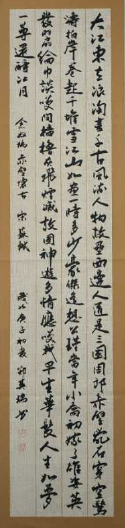 大江東去浪淘盡千古風流人物故壘西邊人道是三國周郎赤壁亂石穿空驚
濤拍岸卷起千堆雪江山如畫一時多少豪傑遙想公瑾當年小喬初嫁了雄姿英
發羽扇綸巾談笑間檣櫓灰飛煙滅故國神遊多情應笑我早生華髮人生如夢
一尊還酹江月 念奴嬌 赤壁懷古 宋 蘇軾
庚子初